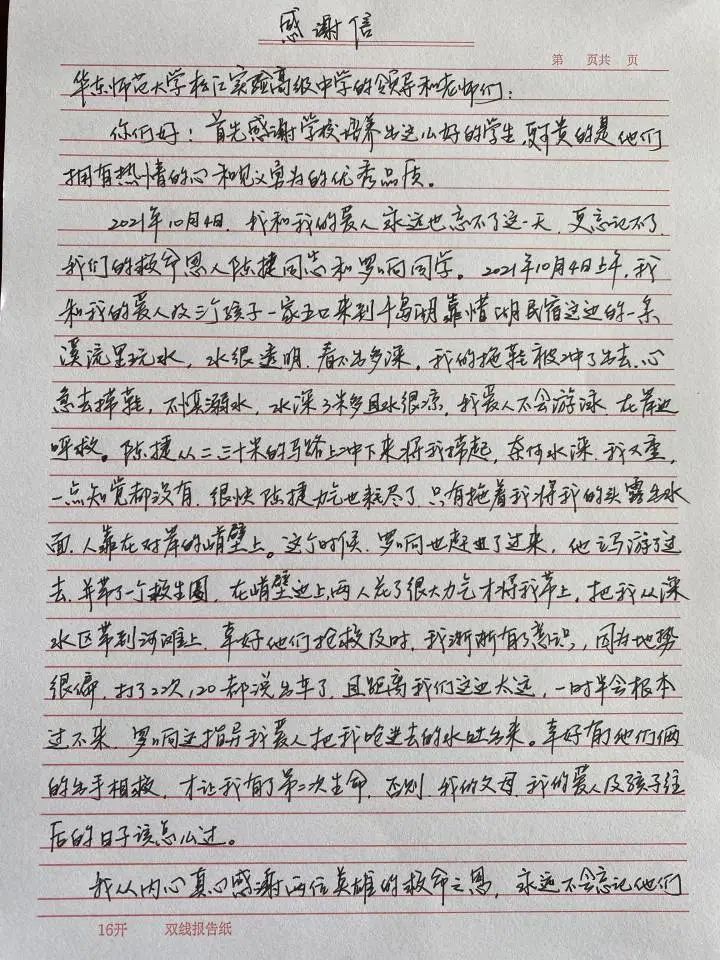 感谢信
第 页共 页
华东师范大学松江实验高级中学的领导和老师们：
你们好！首先感谢学校培养出这么好的学生，更可贵的是他们
拥有热情的心和见义勇为的优秀品质。
2021年10月4日，我和我的爱人永远也忘不了这一天，更忘记不了
我们的救命恩人陈捷同志和罗响同学。2021年10月4日上午，我
和我的爱人及三个孩子一家五口来到千岛湖靠惜湖民宿这边的一条
溪流里玩水，水很透明，看不出多深。我的拖鞋被冲了出去，心
急去捞鞋，不慎溺水，水深3米多且水很凉，我爱人不会游泳，在岸边
呼救。陈捷从二三十米的马路上冲下来将我捞起，奈何水深，我又重，
一点知觉都没有，很快陈捷力气也耗尽了，只有拖着我将我的头露出水
面，人靠在对岸的峭壁上。这个时候，罗响也赶了过来，他游了过
去，并带了一个救生圈，在峭壁边上，两人花了很大力气才将我带上，把我从深
水区带到河滩上，幸好他们抢救及时，我渐渐有了意识，因为地势
很偏，打了22次，120都说出车了，且距离我们这边太远，一时半会根本
过不来，罗响还指导我爱人把我呛进去的水吐出来。幸好有他们俩
的出手相救，才让我有了第二次生命，否则，我的父母，我的爱人及孩子往
后的日子该怎么过。
我从内心真心感谢两位英雄的救命之恩，永远不会忘记他们
16开 双线报告纸